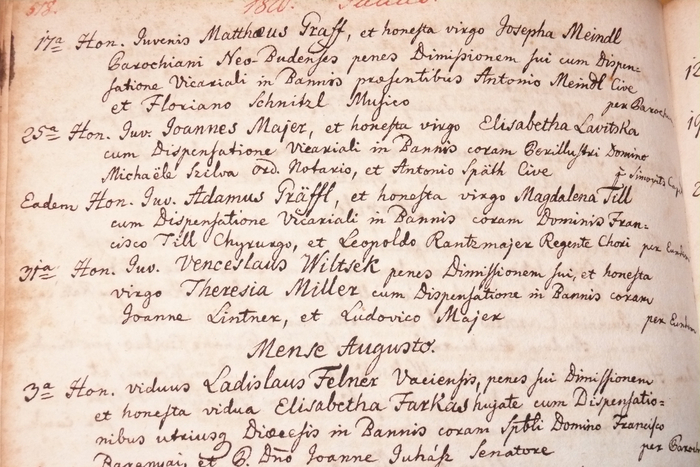 17a Hon. Juvenis Matthæus Graff, et honesta virgo Josepha Meindl
Parochiani Neo-Budenses penes Dimissionem sui cum Dispen-
satione Vicariali in Bannis præsentibus Antonio Meindl Cive
et Floriano Schnitzl Musico per Paroch
25a Hon. Juv. Joannes Majer, et honesta virgo Elisabetha Lavitska
cum Dispensatione Vicariali in Bannis coram Perillustri Domino
Michaële Szilva Ord. Notario, et Antonio Späth Cive
Eadem Hon. Juv. Adamus Gräffl, et honesta virgo Magdalena Till
cum Dispensatione Vicariali in Bannis coram Dominis Fran-
cisco Till Chyrurgo, et Leopoldo Rantzmajer Regente Chori per Eundem
31a Hon. Juv. Venceslaus Wiltsek penes Dimissionem sui, et honesta
virgo Theresia Miller cum Dispensatione in Bannis coram
Joanne Lintner, et Ludovico Majer per Eundem
Mense Augusto.
3a Hon. viduus Ladislaus Felner Vaciensis, penes sui Dimissionem
et honesta vidua Elisabetha Farkas hujate cum Dispensatio-
nibus utriusq Diœcesis in Bannis coram Spbli Domino Francisco
Baranyai, et P. Dno Joanne Juhász Senatore per Paroch